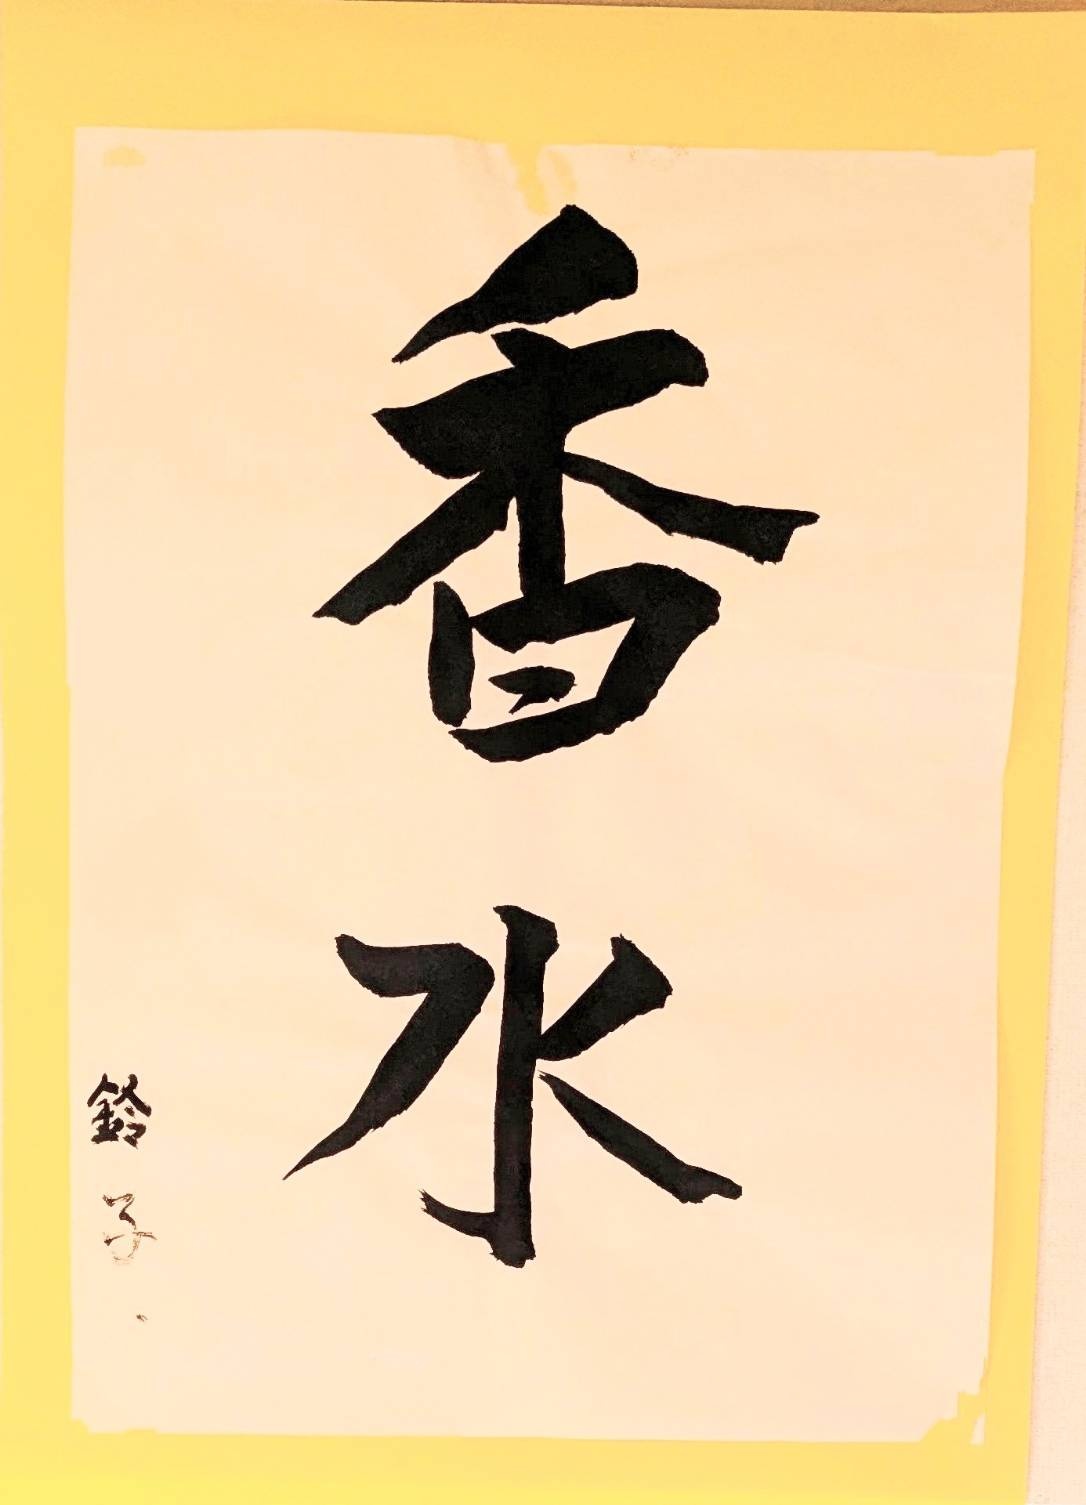 香水
鈴子